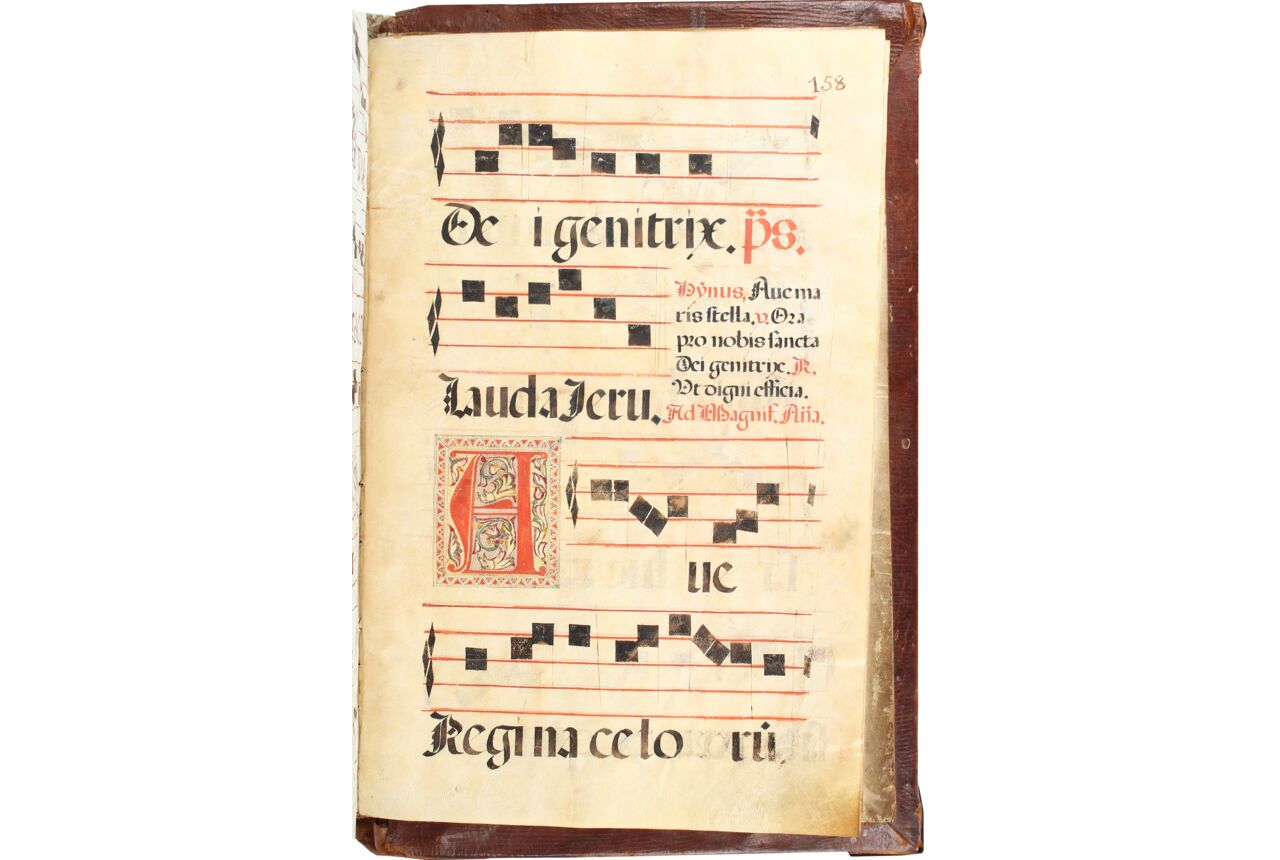 158
De i genitrix. p̈s.
Hẏnus, Aue ma
ris stella. v. Ora
pro nobis sancta
Dei genitrix. R.
Vt digni efficia.
Lauda Ieru.
Ad Magnif. Aña.
A ue
Regi na ce lo rū